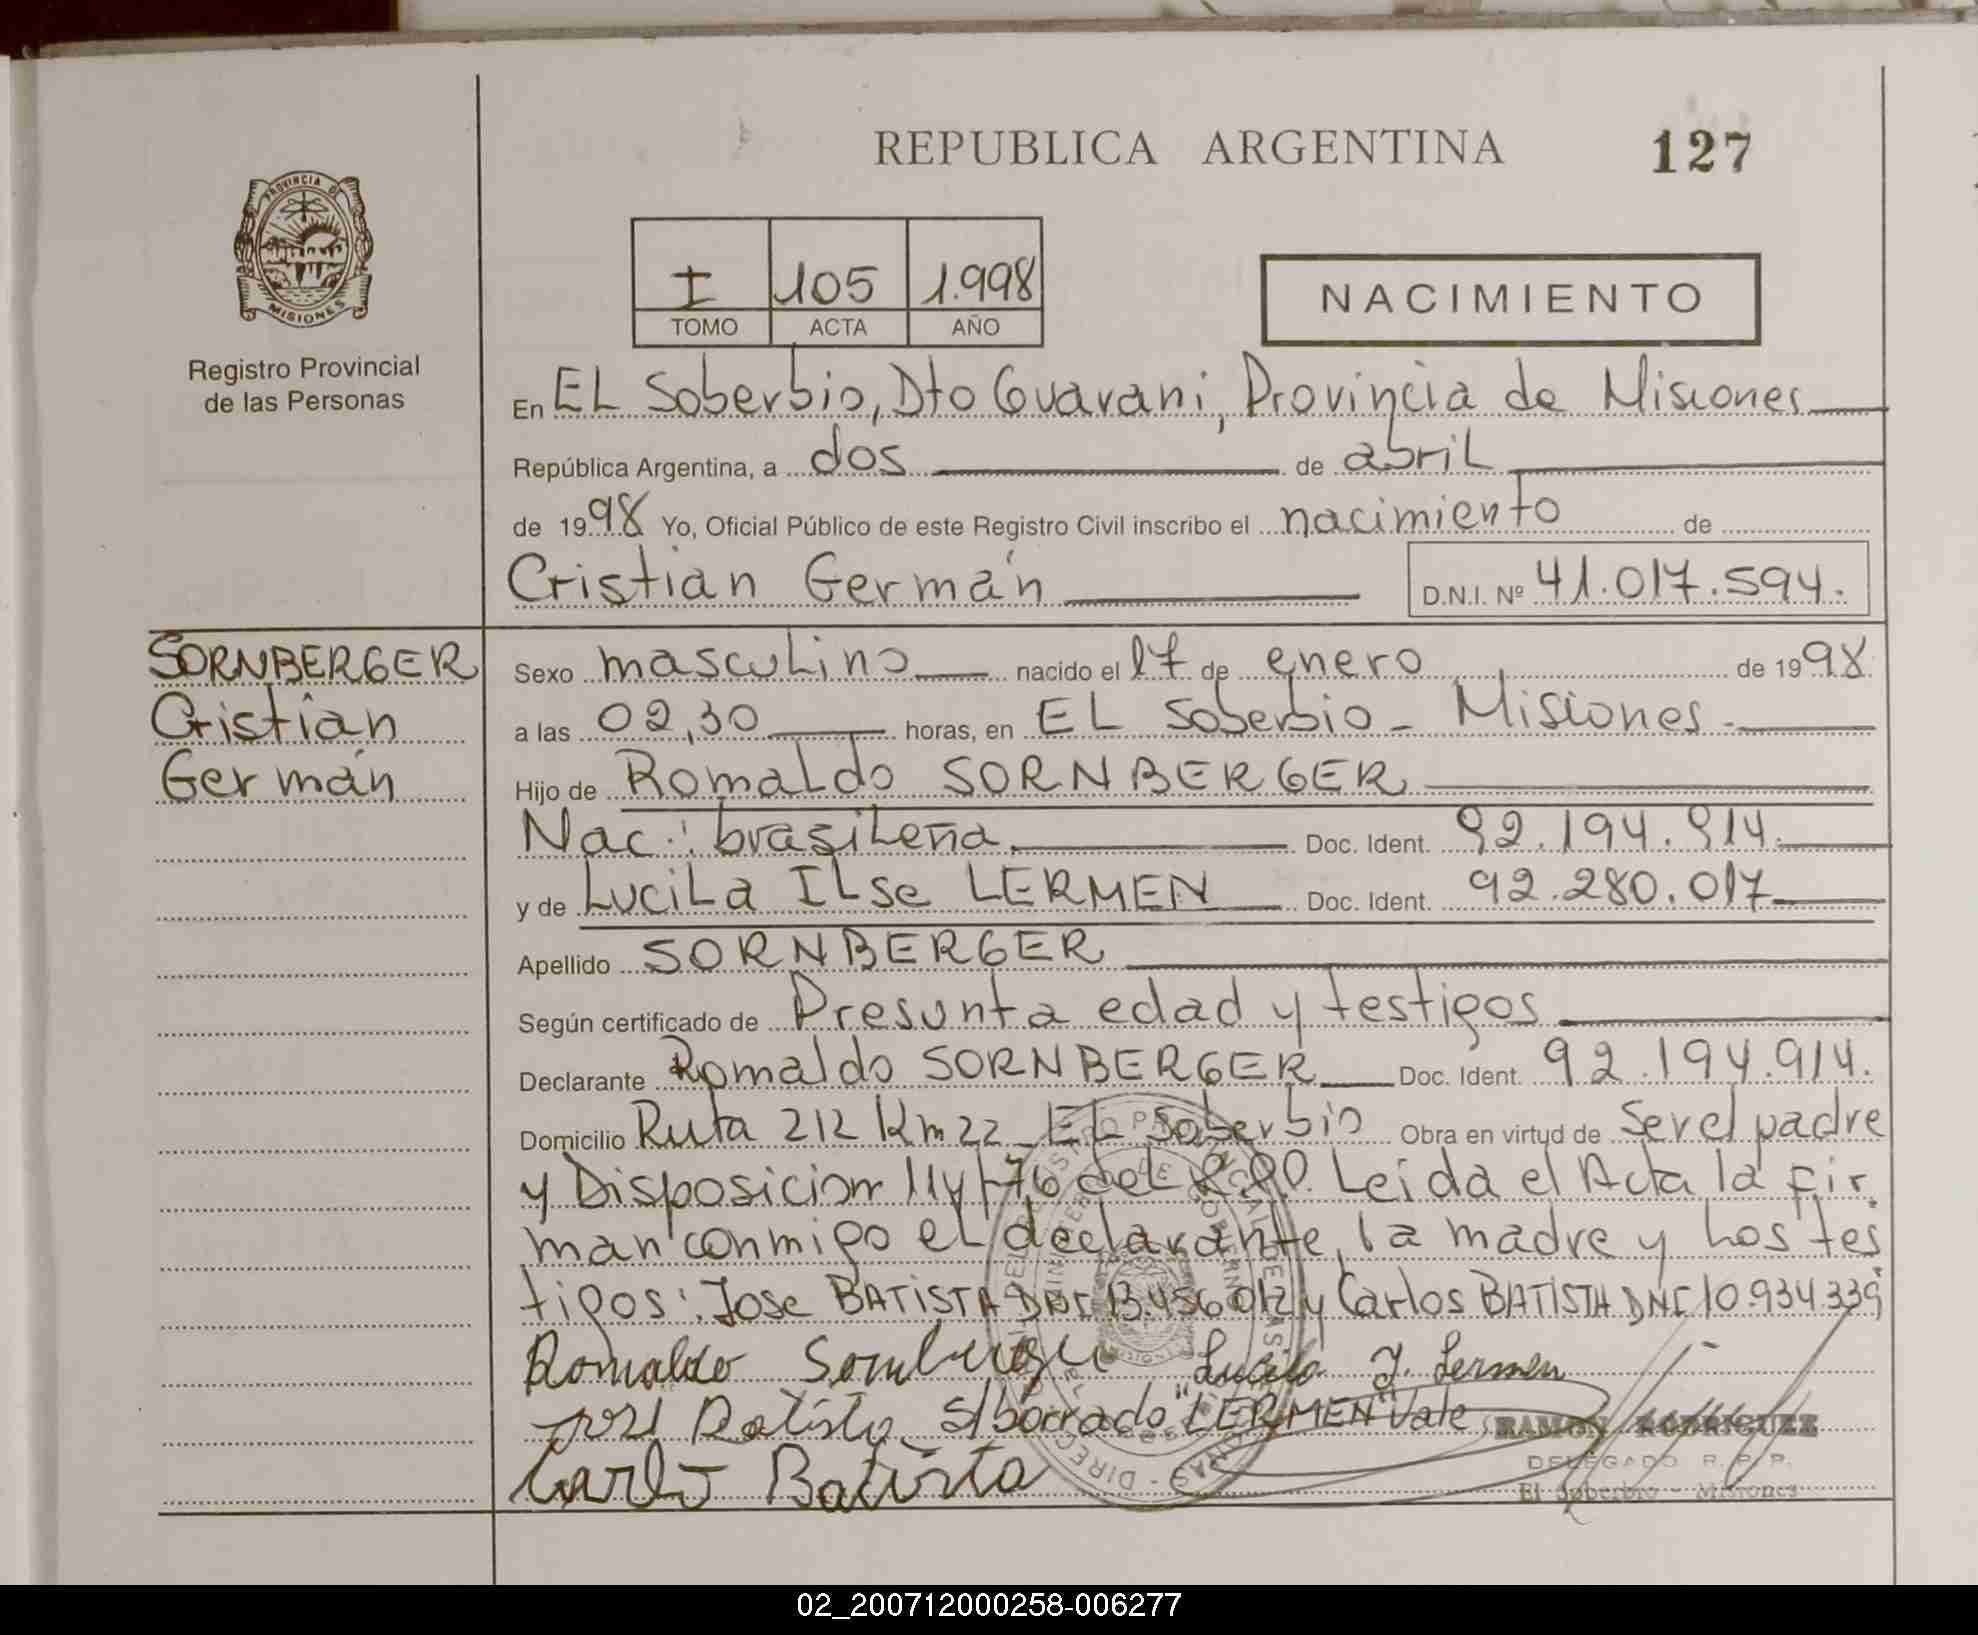 REPUBLICA ARGENTINA
127
PROVINCIA DE
MISIONES
Registro Provincial
de las Personas
I 105 1.998
TOMO ACTA AÑO
NACIMIENTO
En EL Soberbio, Dto Guarani, Provincia de Misiones
República Argentina, a dos de abril
de 1998 Yo, Oficial Público de este Registro Civil inscribo el nacimiento de
Cristian Germán D.N.I. Nº 41.017.594.
SORNBERGER
Cristian
Germán
Sexo masculino nacido el 17 de enero de 1998
a las 02,30 horas, en EL Soberbio - Misiones -
Hijo de Romaldo SORNBERGER
Nac.: brasileña. Doc. Ident. 92.194.914.
y de Lucila Ilse LERMEN Doc. Ident. 92.280.017
Apellido SORNBERGER
Según certificado de Presunta edad y testigos
Declarante Romaldo SORNBERGER Doc. Ident. 92.194.914.
Domicilio Ruta 212 Km 22 - EL Soberbio Obra en virtud de ser el padre
y Disposicion 114/76 del Leida el Acta la fir
man conmigo el declarante, la madre y los tes
tigos: Jose BATISTA DNI 13.456.012 y Carlos BATISTA DNI 10.934.339
Romaldo Sornberger Lucila I. Lermen
José Batista S/borrado "LERMEN" Vale
RAMON RODRIGUEZ
Carlo Batista
DELEGADO R. P. P.
El Soberbio - Misiones
02_200712000258-006277